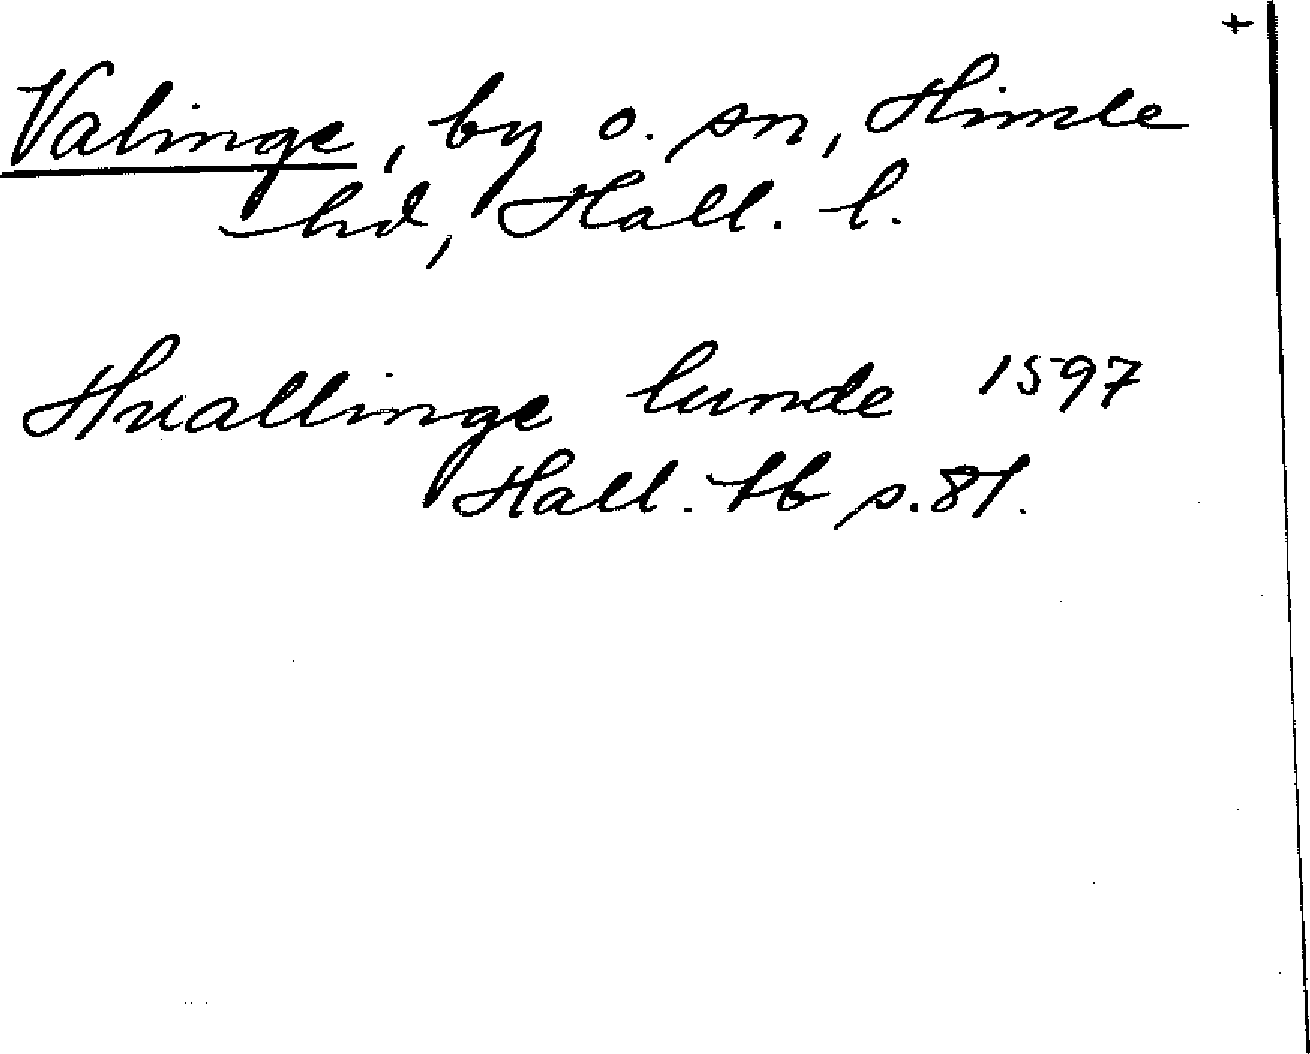 +
Valinge, by o. sn, Himle
hd, Hall. l.
Huallinge lunde 1597
Hall. tb s. 81.